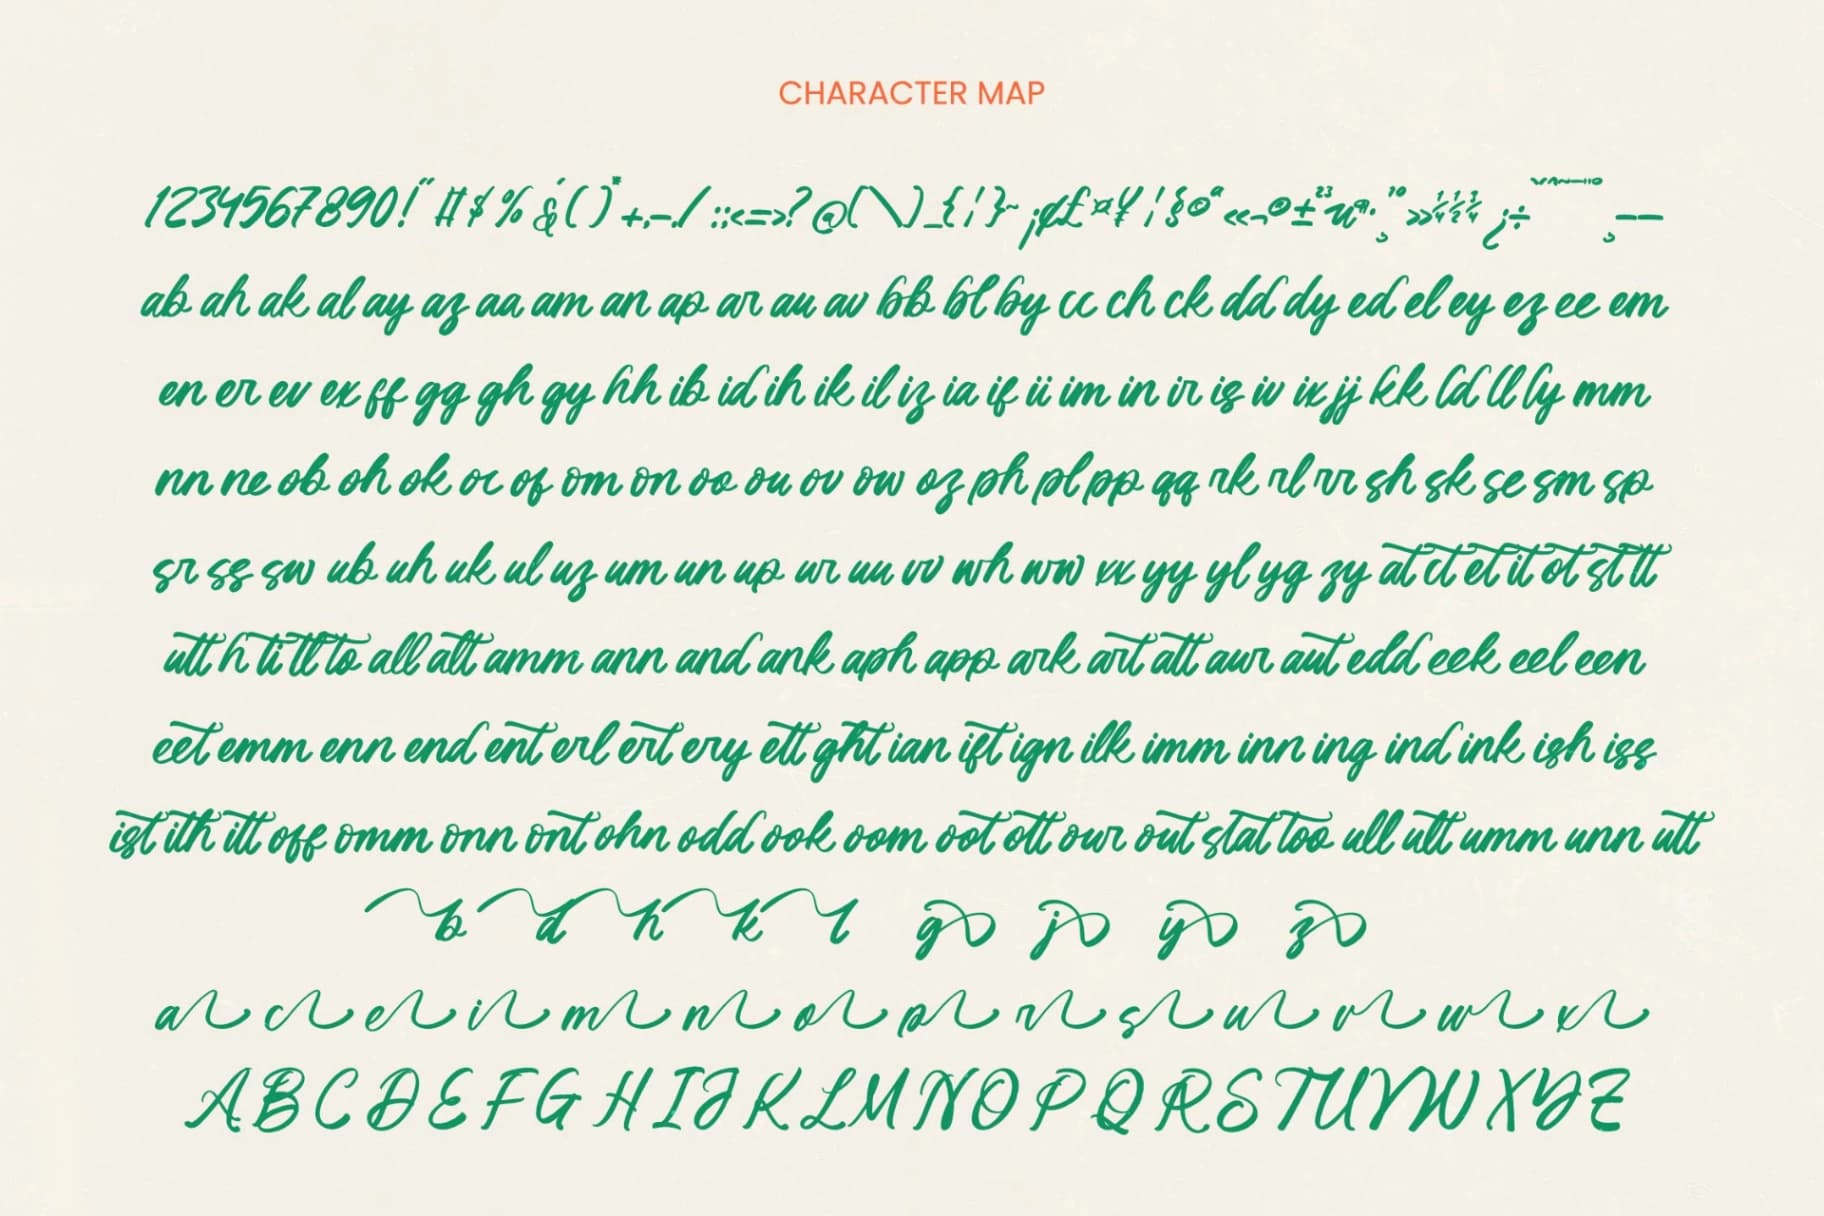 CHARACTER MAP
1234567890!"#$%&'()*+,-./:;<=>?@[\]_{¦}~¡¢£¤¥¦§©ª«¬®±²³µº·¸¹⁰»¼½¾¿÷¸–—
ab ah ak al ay az aa am an ap ar au av bb bl by cc ch ck dd dy ed el ey ez ee em
en er ev ex ff gg gh gy hh ib id ih ik il iz ia if ii im in ir is iv ix jj kk ld ll ly mm
nn ne ob oh ok oc of om on oo ou ov ow oz ph pl pp qq rk rl rr sh sk se sm sp
sr ss sw ub uh uk ul uz um un up ur uu vv wh ww xx yy yl yg zy at ct et it ot st tt
utt h ti tl to all alt amm ann and ank aph app ark art att aur aut edd eek eel een
eet emm enn end ent erl ert ery ett ght ian ift ign ilk imm inn ing ind ink ish iss
ist ith itt off omm onn ont ohn odd ook oom oot ott our out stat too ull ult umm unn utt
b d h k l g j y z
a c e i m n o p r s u v w x
ABCDEFGHIJKLMNOPQRSTUVWXYZ